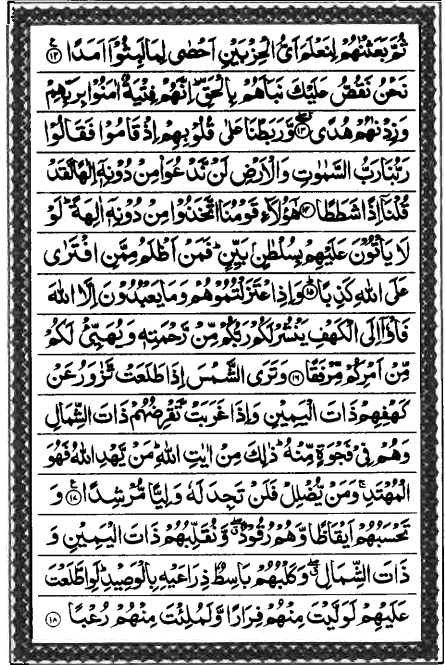 ثُمَّ بَعَثْنٰهُمْ لِنَعْلَمَ اَیُّ الْحِزْبَیْنِ اَحْصٰی لِمَا لَبِثُوْۤا اَمَدًا ﴿۱۲﴾ ع
نَحْنُ نَقُصُّ عَلَیْكَ نَبَاَهُمْ بِالْحَقِّ ؕ اِنَّهُمْ فِتْیَةٌ اٰمَنُوْا بِرَبِّهِمْ
وَزِدْنٰهُمْ هُدًی ﴿۱۳﴾ وَّرَبَطْنَا عَلٰی قُلُوْبِهِمْ اِذْ قَامُوْا فَقَالُوْا
رَبُّنَا رَبُّ السَّمٰوٰتِ وَالْاَرْضِ لَنْ نَّدْعُوَا۟ مِنْ دُوْنِهٖۤ اِلٰهًا لَّقَدْ
قُلْنَاۤ اِذًا شَطَطًا ﴿۱۴﴾ هٰۤؤُلَآءِ قَوْمُنَا اتَّخَذُوْا مِنْ دُوْنِهٖۤ اٰلِهَةً ؕ لَوْ
لَا یَاْتُوْنَ عَلَیْهِمْ بِسُلْطٰنٍۭ بَیِّنٍ ؕ فَمَنْ اَظْلَمُ مِمَّنِ افْتَرٰی
عَلَی اللّٰهِ كَذِبًا ﴿۱۵﴾ وَاِذِ اعْتَزَلْتُمُوْهُمْ وَمَا یَعْبُدُوْنَ اِلَّا اللّٰهَ
فَاْوٗۤا اِلَی الْكَهْفِ یَنْشُرْ لَكُمْ رَبُّكُمْ مِّنْ رَّحْمَتِهٖ وَیُهَیِّئْ لَكُمْ
مِّنْ اَمْرِكُمْ مِّرْفَقًا ﴿۱۶﴾ وَتَرَی الشَّمْسَ اِذَا طَلَعَتْ تَّزٰوَرُ عَنْ
كَهْفِهِمْ ذَاتَ الْیَمِیْنِ وَاِذَا غَرَبَتْ تَّقْرِضُهُمْ ذَاتَ الشِّمَالِ
وَهُمْ فِیْ فَجْوَةٍ مِّنْهُ ؕ ذٰلِكَ مِنْ اٰیٰتِ اللّٰهِ ؕ مَنْ یَّهْدِ اللّٰهُ فَهُوَ
الْمُهْتَدِ ۚ وَمَنْ یُّضْلِلْ فَلَنْ تَجِدَ لَهٗ وَلِیًّا مُّرْشِدًا ﴿۱۷﴾ ع وَ
تَحْسَبُهُمْ اَیْقَاظًا وَّهُمْ رُقُوْدٌ ۖ وَّنُقَلِّبُهُمْ ذَاتَ الْیَمِیْنِ وَ
ذَاتَ الشِّمَالِ ۖ وَكَلْبُهُمْ بَاسِطٌ ذِرَاعَیْهِ بِالْوَصِیْدِ ؕ لَوِ اطَّلَعْتَ
عَلَیْهِمْ لَوَلَّیْتَ مِنْهُمْ فِرَارًا وَّلَمُلِئْتَ مِنْهُمْ رُعْبًا ﴿۱۸﴾